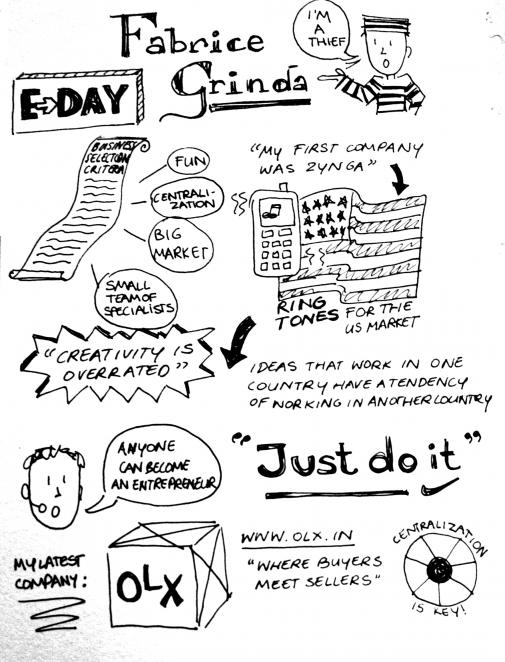 Fabrice
Grinda
I'M
A
THIEF
E→DAY
BUSINESS
SELECTION
CRITERIA
FUN
CENTRALI-
ZATION
BIG
MARKET
SMALL
TEAM OF
SPECIALISTS
"MY FIRST COMPANY
WAS ZYNGA"
RING
TONES FOR THE
US MARKET
"CREATIVITY IS
OVERRATED"
IDEAS THAT WORK IN ONE
COUNTRY HAVE A TENDENCY
OF WORKING IN ANOTHER COUNTRY
ANYONE
CAN BECOME
AN ENTREPRENEUR
"Just do it"
MY LATEST
COMPANY:
OLX
WWW.OLX.IN
"WHERE BUYERS
MEET SELLERS"
CENTRALIZATION
IS KEY!